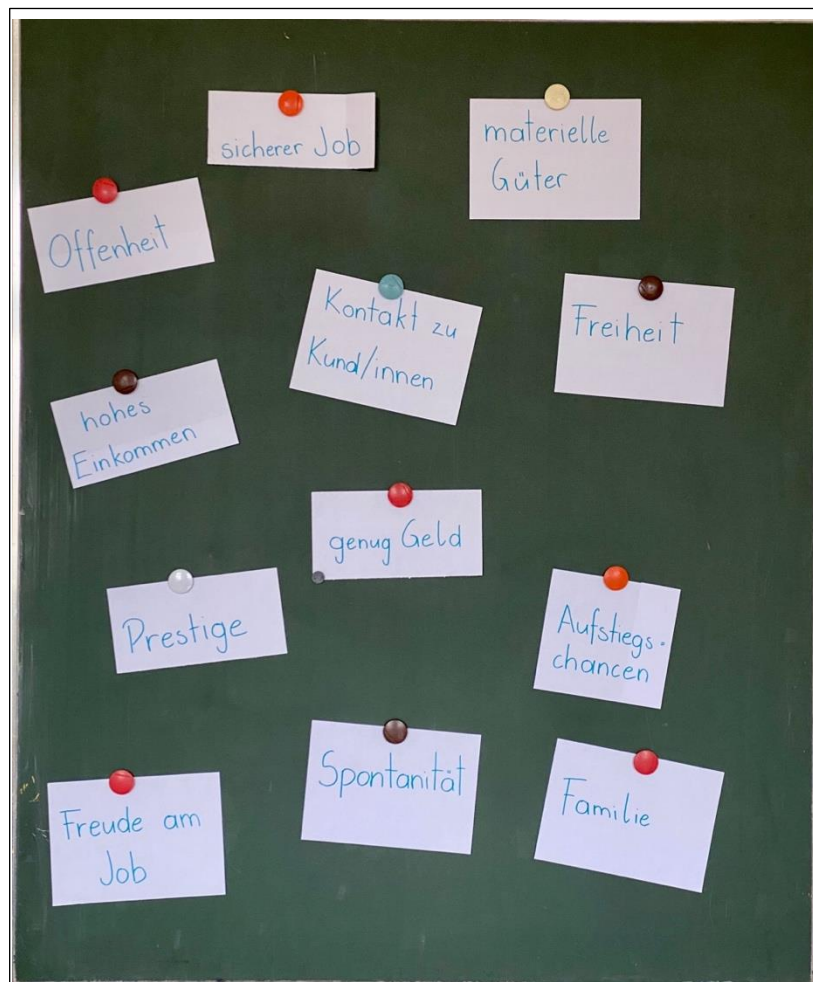 sicherer Job
materielle
Güter
Offenheit
Kontakt zu
Kund/innen
Freiheit
hohes
Einkommen
genug Geld
Prestige
Aufstiegs-
chancen
Spontanität
Familie
Freude am
Job